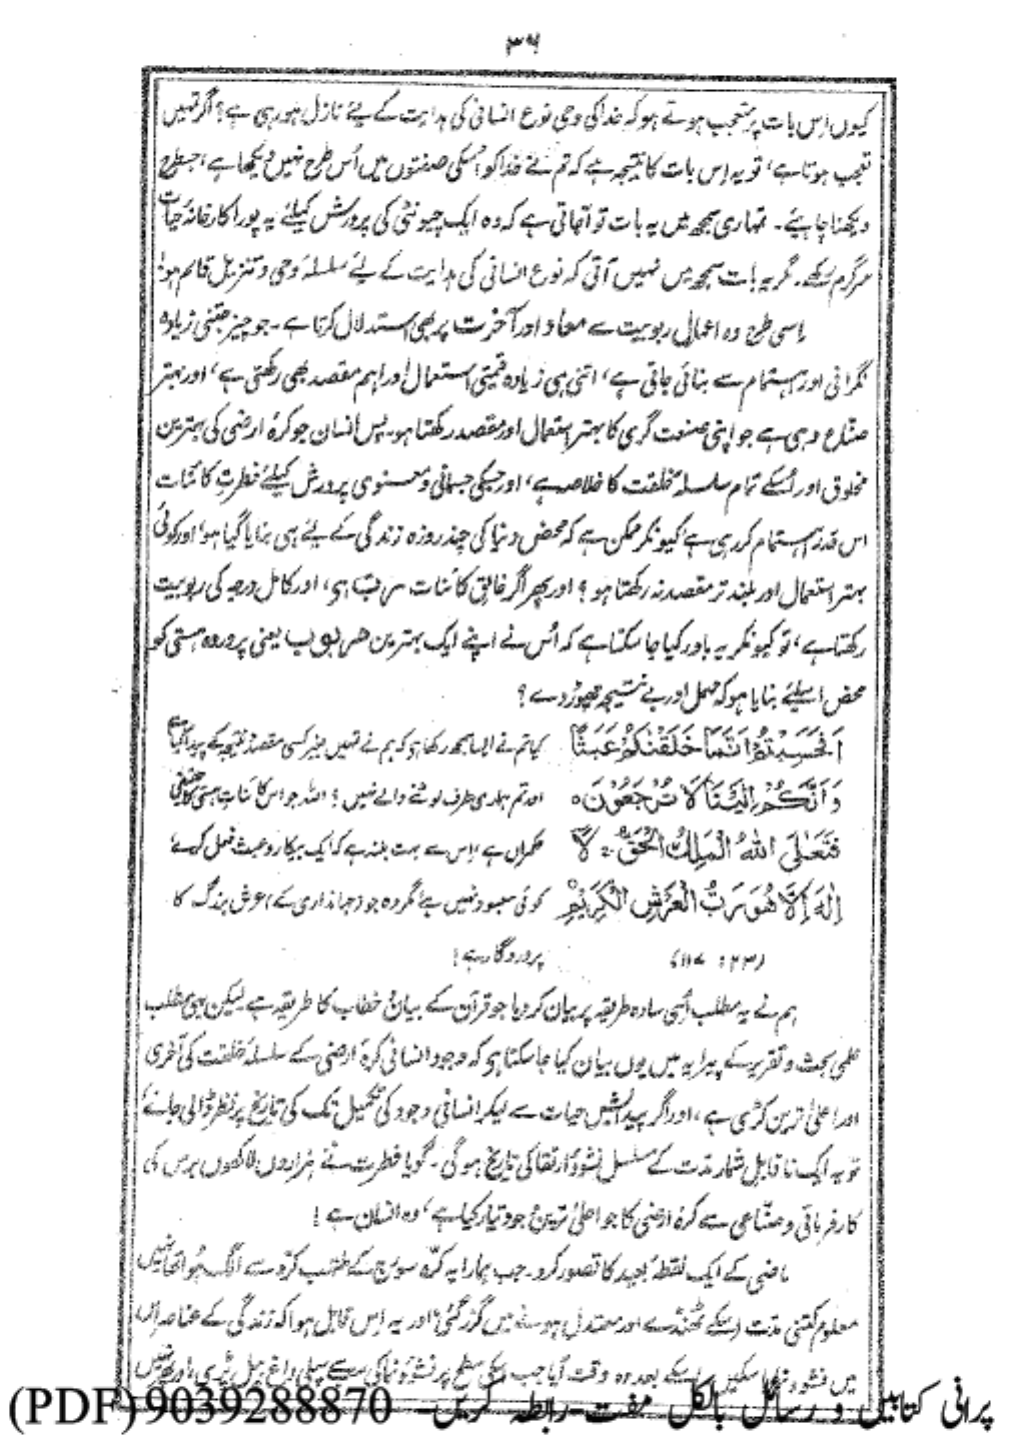 ۳۹
کیوں اِس بات پر متعجب ہوتے ہو کہ خدا کی وحی نوع انسانی کی ہدایت کے لیے نازل ہو رہی ہے؟ اگر تمہیں
تعجب ہوتا ہے، تو یہ اِس بات کا نتیجہ ہے کہ تم نے خدا کو اُسکی صفتوں میں اُس طرح نہیں دیکھا ہے، جسطرح
دیکھنا چاہیئے۔ تمہاری سمجھ میں یہ بات تو آجاتی ہے کہ وہ ایک چیونٹی کی پرورش کیلئے یہ پورا کارخانۂ حیات
سرگرم رکھے۔ مگر یہ بات سمجھ میں نہیں آتی کہ نوع انسانی کی ہدایت کے لیے سلسلۂ وحی و تنزیل قائم ہو!
اِسی طرح وہ اعمالِ ربوبیت سے معاد اور آخرت پر بھی استدلال کرتا ہے۔ جو چیز جتنی زیادہ
نگرانی اور اہتمام سے بنائی جاتی ہے، اتنی ہی زیادہ قیمتی استعمال اور اہم مقصد بھی رکھتی ہے، اور بہتر
صنّاع وہی ہے جو اپنی صنعت گری کا بہتر استعمال اور مقصد رکھتا ہو۔ پس انسان جو کرۂ ارضی کی بہترین
مخلوق اور اُسکے تمام سلسلۂ خلقت کا خلاصہ ہے، اور جسکی جسمانی و معنوی پرورش کیلئے فطرتِ کائنات
اس قدر اہتمام کر رہی ہے کیونکر ممکن ہے کہ محض دنیا کی چند روزہ زندگی کے لیے ہی بنایا گیا ہو، اور کوئی
بہتر استعمال اور بلند تر مقصد نہ رکھتا ہو؟ اور پھر اگر خالق کائنات رب ہی، اور کامل درجہ کی ربوبیت
رکھتا ہے، تو کیونکر یہ باور کیا جا سکتا ہے کہ اُس نے اپنے ایک بہترین مربوب یعنی پروردہ ہستی کو
محض اسلیئے بنایا ہو کہ مہمل اور بے نتیجہ چھوڑ دے؟
اَفَحَسِبْتُمْ اَنَّمَا خَلَقْنٰكُمْ عَبَثًا کیا تم نے ایسا سمجھ رکھا ہو کہ ہم نے تمہیں بغیر کسی مقصد و نتیجہ کے پیدا کیا ہے
وَاَنَّكُمْ اِلَيْنَا لَا تُرْجَعُوْنَ ہ اور تم ہماری طرف لوٹنے والے نہیں؟ اللہ جو اس کائنات ہستی کا حقیقی
فَتَعٰلَى اللهُ الْمَلِكُ الْحَقُّ ۚ لَا حکمراں ہے اِس سے بہت بلند ہے کہ ایک بیکار و عبث فعل کرے
اِلٰهَ اِلَّا هُوَ رَبُّ الْعَرْشِ الْكَرِيْمِ کوئی معبود نہیں ہے مگر وہ جو (جہانداری کے) عرش بزرگ کا
(۲۳: ۱۱۷) پروردگار ہے!
ہم نے یہ مطلب اُسی سادہ طریقہ پر بیان کر دیا جو قرآن کے بیان و خطاب کا طریقہ ہے لیکن یہی مطلب
علمی بحث و تقریر کے پیرایہ میں یوں بیان کیا جا سکتا ہو کہ وجود انسانی کرۂ ارضی کے سلسلۂ خلقت کی آخری
اور اعلیٰ ترین کڑی ہے، اور اگر پیدائش حیات سے لیکر انسانی وجود کی تکمیل تک کی تاریخ پر نظر ڈالی جائے
تو یہ ایک ناقابل شمار مدت کے مسلسل نشو و ارتقا کی تاریخ ہوگی۔ گویا فطرت نے ہزاروں لاکھوں برس کی
کارفرمائی و صنّاعی سے کرۂ ارضی کا جو اعلیٰ ترین وجود تیار کیا ہے، وہ انسان ہے!
ماضی کے ایک نقطۂ بعید کا تصور کرو۔ جب ہمارا یہ کرّہ سورج کے ملتہب کرّہ سے الگ ہوا تھا نہیں
معلوم کتنی مدت اِسکے ٹھنڈے اور معتدل ہونے میں گزر گئی اور یہ اِس قابل ہوا کہ زندگی کے عناصر اِس
میں نشو و نما پا سکیں اسکے بعد وہ وقت آیا جب اسکی سطح پر نشو و نما کی سب سے پہلی داغ بیل پڑی، اور پھر نہیں
پرانی کتابیں و رسائل بالکل مفت۔رابطہ کریں۔ 9039288870 (PDF)